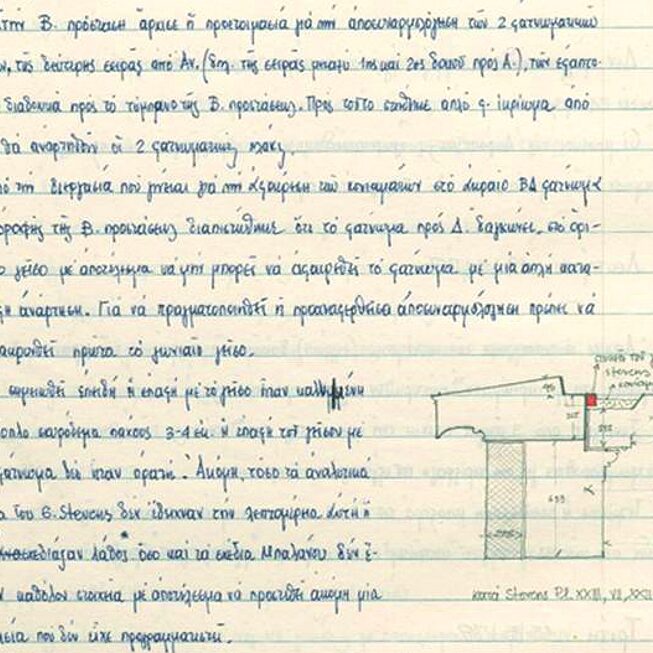 την Β. πρόσταση άρχισε η προετοιμασία για την αποσυναρμολόγηση των 2 φατνωματικών
της δεύτερης σειράς από Αν. (δηλ. της σειράς μεταξύ 1ης και 2ας δοκού προς Α.), των εξαπτο-
διαδοχικά προς το τύμπανο της Β. προστάσεως. Προς τούτο στήθηκε απλό ικρίωμα από
θα αναρτηθούν οι 2 φατνωματικές πλάκες.
τη διεργασία που γίνεται για την εξαίρεση των κονιαμάτων στο ακραίο ΒΔ φάτνωμα
οροφής της Β. προστάσεως διαπιστώθηκε ότι το φάτνωμα προς Δ. δαγκώνει, στο ορι-
γείσο με αποτέλεσμα να μην μπορεί να εξαιρεθεί το φάτνωμα με μια απλή κατα-
ανάρτηση. Για να πραγματοποιηθεί η προαναφερθείσα αποσυναρμολόγηση πρέπει να
πρώτα το γωνιαίο γείσο.
σημειωθεί επειδή η επαφή με το γείσο ήταν καλυμμένη
σκυρόδεμα πάχους 3-4 εκ. η επαφή του γείσου με
φάτνωμα δεν ήταν ορατή. Ακόμη, τόσο τα αναλυτικά
του G. Stevens δεν έδειχναν την λεπτομέρεια αυτή ή
σχεδίαζαν λάθος όσο και τα σχέδια Μπαλάνου δεν έ-
καθόλου στοιχεία με αποτέλεσμα να προστεθεί ακόμη μία
που δεν είχε προγραμματιστεί.
Stevens
κατά Stevens Pl. XXIII, VII, XXII